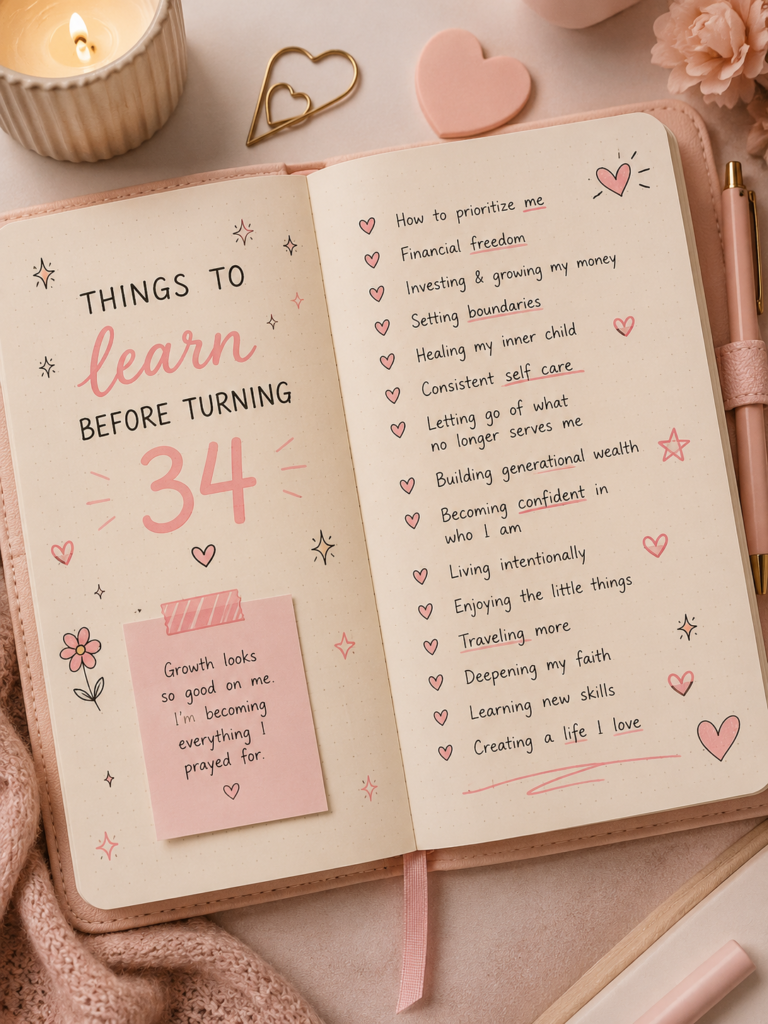 THINGS TO
learn
BEFORE TURNING
34
Growth looks
so good on me.
I'm becoming
everything I
prayed for.
How to prioritize me
Financial freedom
Investing & growing my money
Setting boundaries
Healing my inner child
Consistent self care
Letting go of what
no longer serves me
Building generational wealth
Becoming confident in
who I am
Living intentionally
Enjoying the little things
Traveling more
Deepening my faith
Learning new skills
Creating a life I love